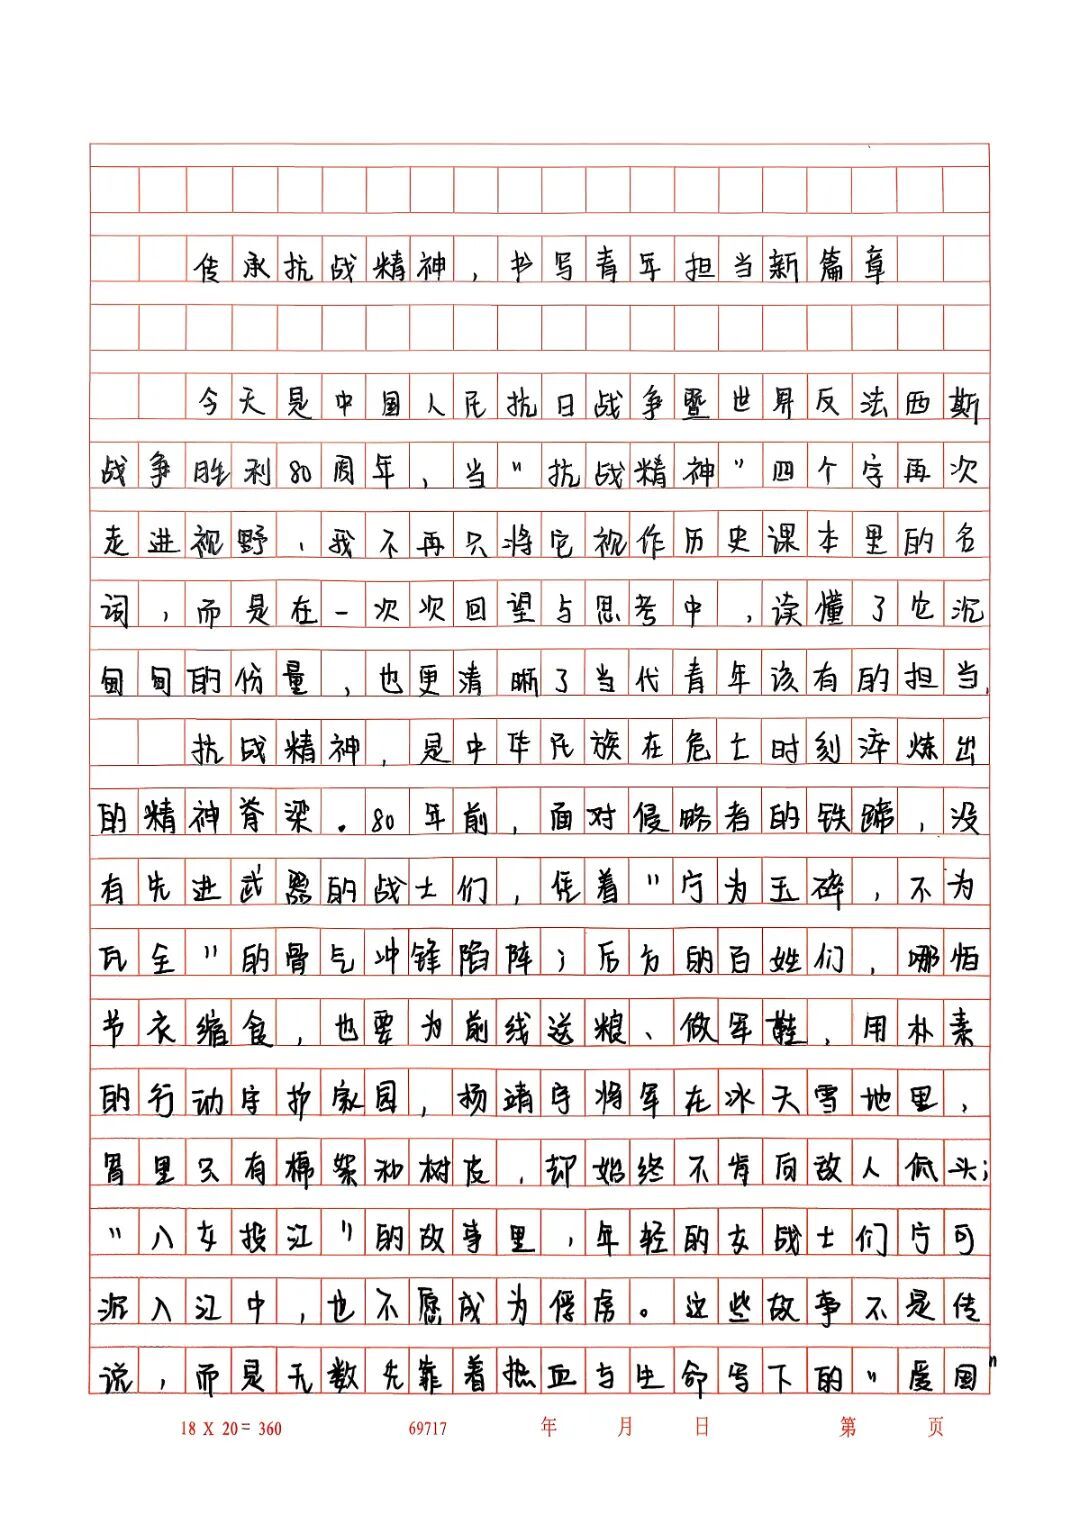 传承抗战精神，书写青年担当新篇章
今天是中国人民抗日战争暨世界反法西斯
战争胜利80周年，当“抗战精神”四个字再次
走进视野、我不再只将它视作历史课本里的名
词，而是在一次次回望与思考中，读懂了它沉
甸甸的份量，也更清晰了当代青年该有的担当.
抗战精神，是中华民族在危亡时刻淬炼出
的精神脊梁.80年前，面对侵略者的铁蹄，没
有先进武器的战士们，凭着“宁为玉碎，不为
瓦全”的骨气冲锋陷阵；后方的百姓们，哪怕
节衣缩食，也要为前线送粮、做军鞋，用朴素
的行动守护家园，杨靖宇将军在冰天雪地里，
胃里只有棉絮和树皮，却始终不肯向敌人低头；
“八女投江”的故事里，年轻的女战士们宁可
沉入江中，也不愿成为俘虏。这些故事不是传
说，而是无数先辈着热血与生命写下的“爱国”
18 X 20 = 360 69717 年 月 日 第 页